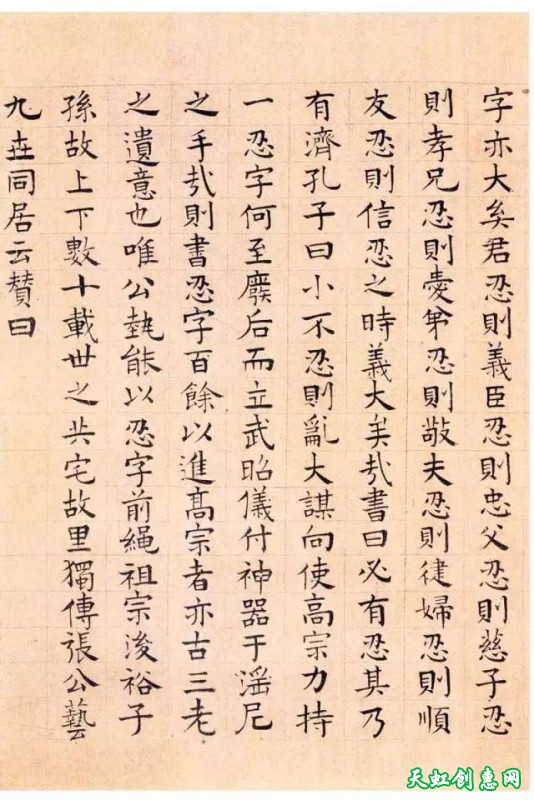 字亦大矣君忍則義臣忍則忠父忍則慈子忍
則孝兄忍則愛弟忍則敬夫忍則健婦忍則順
友忍則信忍之時義大矣哉書曰必有忍其乃
有濟孔子曰小不忍則亂大謀向使高宗力持
一忍字何至廢后而立武昭儀付神器于滛尼
之手哉則書忍字百餘以進高宗者亦古三老
之遺意也唯公埶能以忍字前繩祖宗浚裕子
孫故上下數十載世之共宅故里獨傳張公藝
九世同居云贊曰
天虹创惠网